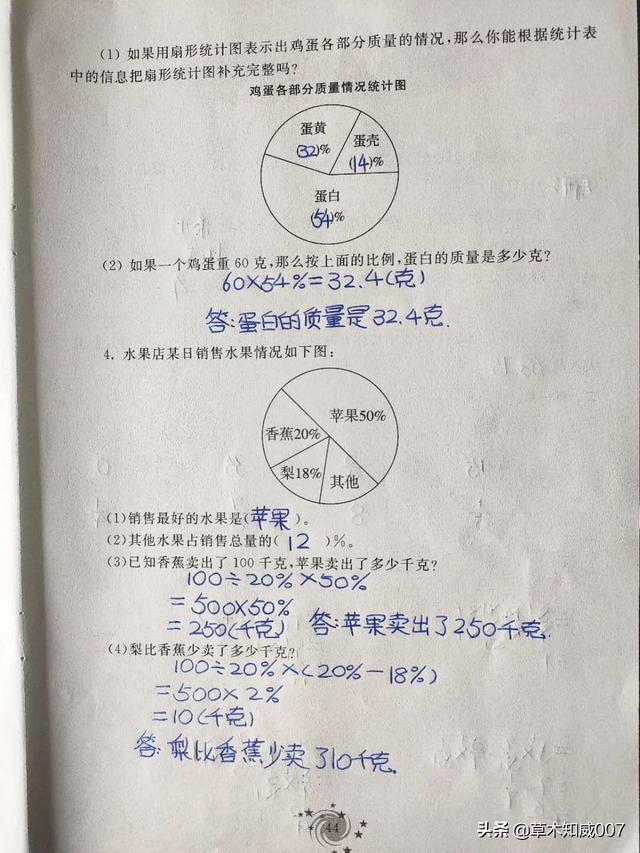 (1) 如果用扇形统计图表示出鸡蛋各部分质量的情况,那么你能根据统计表
中的信息把扇形统计图补充完整吗?
鸡蛋各部分质量情况统计图
蛋黄
(32)%
蛋壳
(14)%
蛋白
(54)%
(2) 如果一个鸡蛋重 60 克,那么按上面的比例,蛋白的质量是多少克?
60×54%=32.4(克)
答:蛋白的质量是32.4克.
4. 水果店某日销售水果情况如下图:
苹果50%
香蕉20%
梨18%
其他
(1)销售最好的水果是(苹果)。
(2)其他水果占销售总量的( 12 )%。
(3)已知香蕉卖出了 100 千克,苹果卖出了多少千克?
100÷20%×50%
=500×50%
=250(千克) 答:苹果卖出了250千克.
(4)梨比香蕉少卖了多少千克?
100÷20%×(20%-18%)
=500×2%
=10(千克)
答:梨比香蕉少卖了10千克.
44
头条 @草木知威007